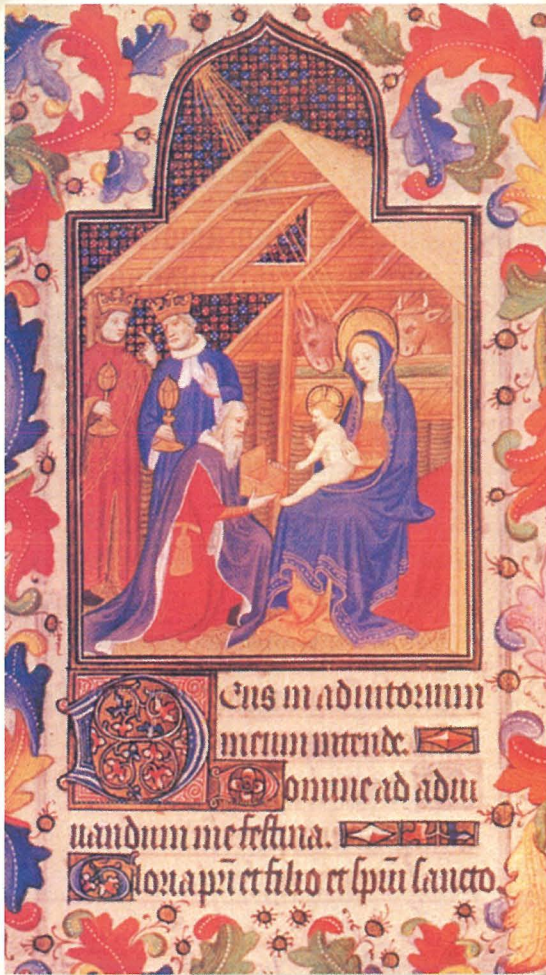 Deus in adiutorium
meum intende.
Domine ad adiu
uandum me festina.
Gloria pri et filio et spui sancto.